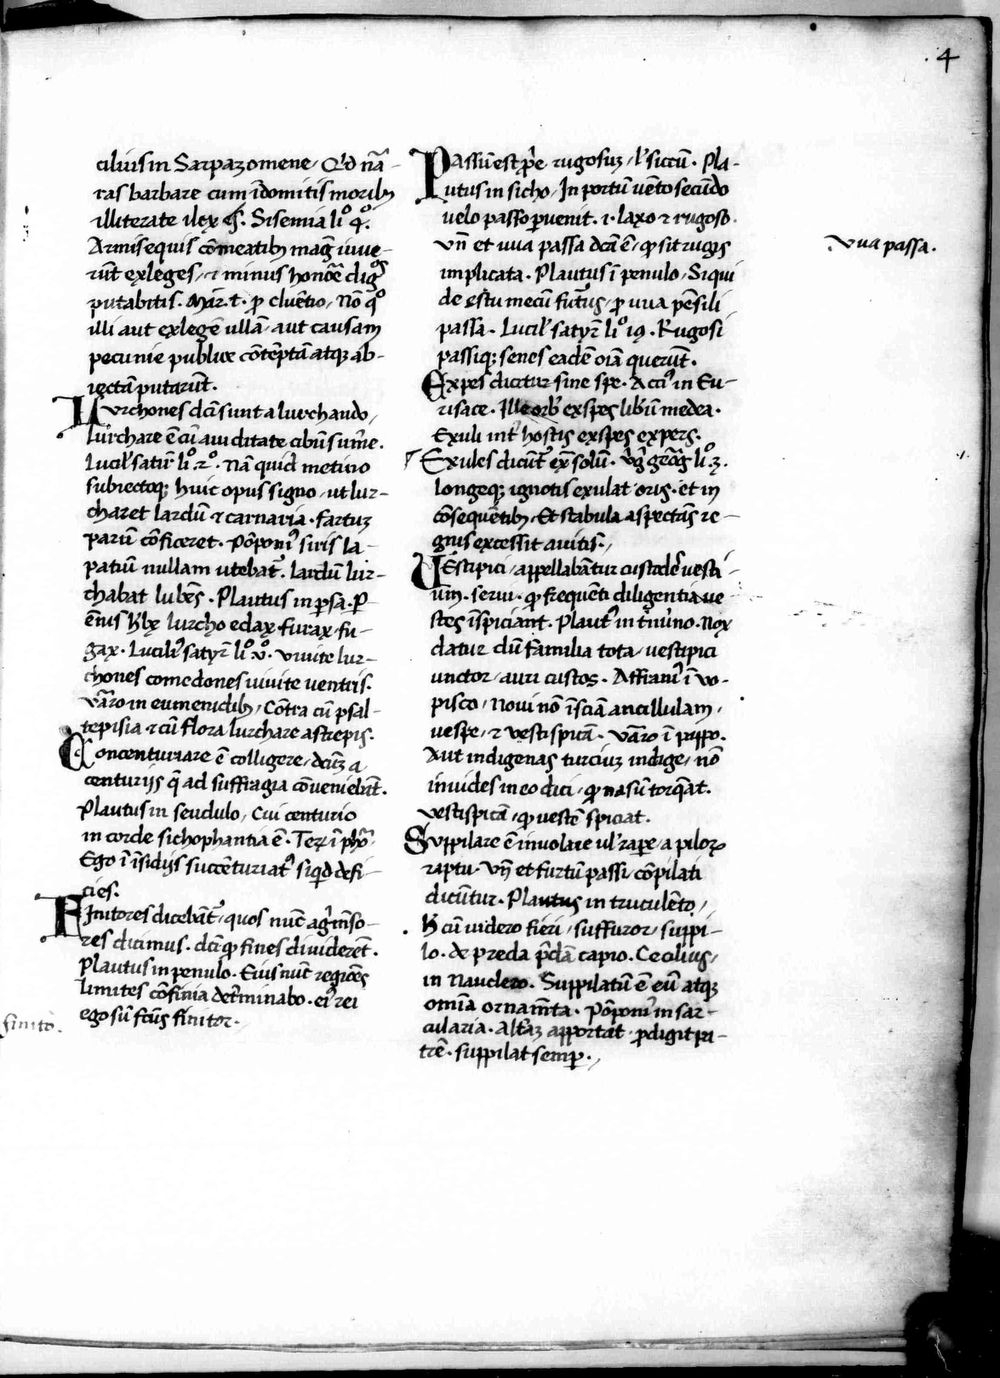 4
ciliusin Sarpazomene, Qd nā-
ras barbare cum īdomitis moribꝫ
illiterate ilex Sisennia li° 4°.
Armis equis cōmeatibꝫ mag iuue-
rūt exleges, ⁊ minus honoē dig
putabitis. M̄r. t. ꝓ cluētio, Nō qº
illi aut exlegē ullā, aut causam
pecunie publice cōtēptā atqꝫ ab-
iectā putarūt.
Lvrchones dc̄i sunt a lurchando,
lurchare ē cū auiditate cibū sum̄e.
Lucil' satir̄ li° 2°. Nā quid metino
subiectoqꝫ huic opus signo, ut lur-
charet lardū ⁊ carnaria. fartuꝫ
pariū cōficeret. Pōponi' siris la-
patiū nullam utebat̄. lardū lur-
chabat lubēs. Plautus in ꝑsa. P-
ēnis lurcho edax furax fu-
gax. Lucili' satyr̄ li° v°. vivite lur-
chones comedones uiuite uentris.
vāro in eumenidibꝫ, Cōtra cū psal-
tepisia ⁊ cū flora lurchare astrepis.
Concenturiare ē colligere, dc̄uꝫ a
centuriis q̄ ad suffragia cōveniebāt.
Plautus in seudulo, Cui centurio
in corde sichophantia ē. Ter̄ ī
Ego ī īsidijs succēturiat' siqd defi-
cies.
FInitores dicebāt̄, quos nūc ag̃mēso-
res dicimus. dc̄i qꝫ fines dividerēt.
Plautus in penulo. Eius nūt regiōes
limites cōfinia det̄minabo. ei' rei
ego sū fc̄us finitor.
finito.
PAssū est ꝓp̄e rugosuꝫ, l' siccū. Pla-
utus in sicho, In portū uēto secūdo
uelo passo ꝑuenit. i. laxo ⁊ rugoso.
vn̄ et uua passa dc̄a ē, qꝫ sit rugis
implicata. Plautus ī penulo, Siqui
de estu mecū fut̄us, ꝓ uua pēsili
passa. Lucil' satyr̄ li° 19. Rugosi
passiqꝫ senes eadē oīa querūt.
Expes dicitur sine spe. Acci' in Eu-
risace. Ille orb' exspes libiū medea.
Exuli int̄ hostis exspes expers.
Exules dicūt̄ ex̄ solū. v̄g̃ geōg̃ li° 3.
longeqꝫ ignotis exulat oris. et in
cōsequētibꝫ, Et stabula aspectās re-
gnis excessit auitis.
VEstipici, appellabātur custode' vesti-
um. serui. qꝫ frequēti diligentia ue
stes īspiciant. Plaut' in t̄nūno. Nox
datur dū familia tota, uestipici
unctor, auri custos. Affrani' ī vo-
pisco, Noui nō īsciā ancillulam,
uespe, ⁊ vestispicā. vāro ī
Aut indigenas turciuꝫ indige, nō
inuides in eo dici, qꝫ nasū torq̄at.
vestispicā, qꝫ uestē spiciat.
Svppilare ē involare ul' rape, a piloꝝ
raptu. vn̄ et furtū passi cōpilati
dicūtur. Plautus in truculēto,
cū uidero fieri, suffuror, suppi-
lo. de preda p̄dā capio. Cecilius,
in Nauclero. Suppilatū ē eū atqꝫ
omīa ornam̄ta. Pōponi' in sar-
cularia. Alt̄aꝫ apportat ꝓdigit pa-
trē. suppilat semꝑ.
Vua passa.